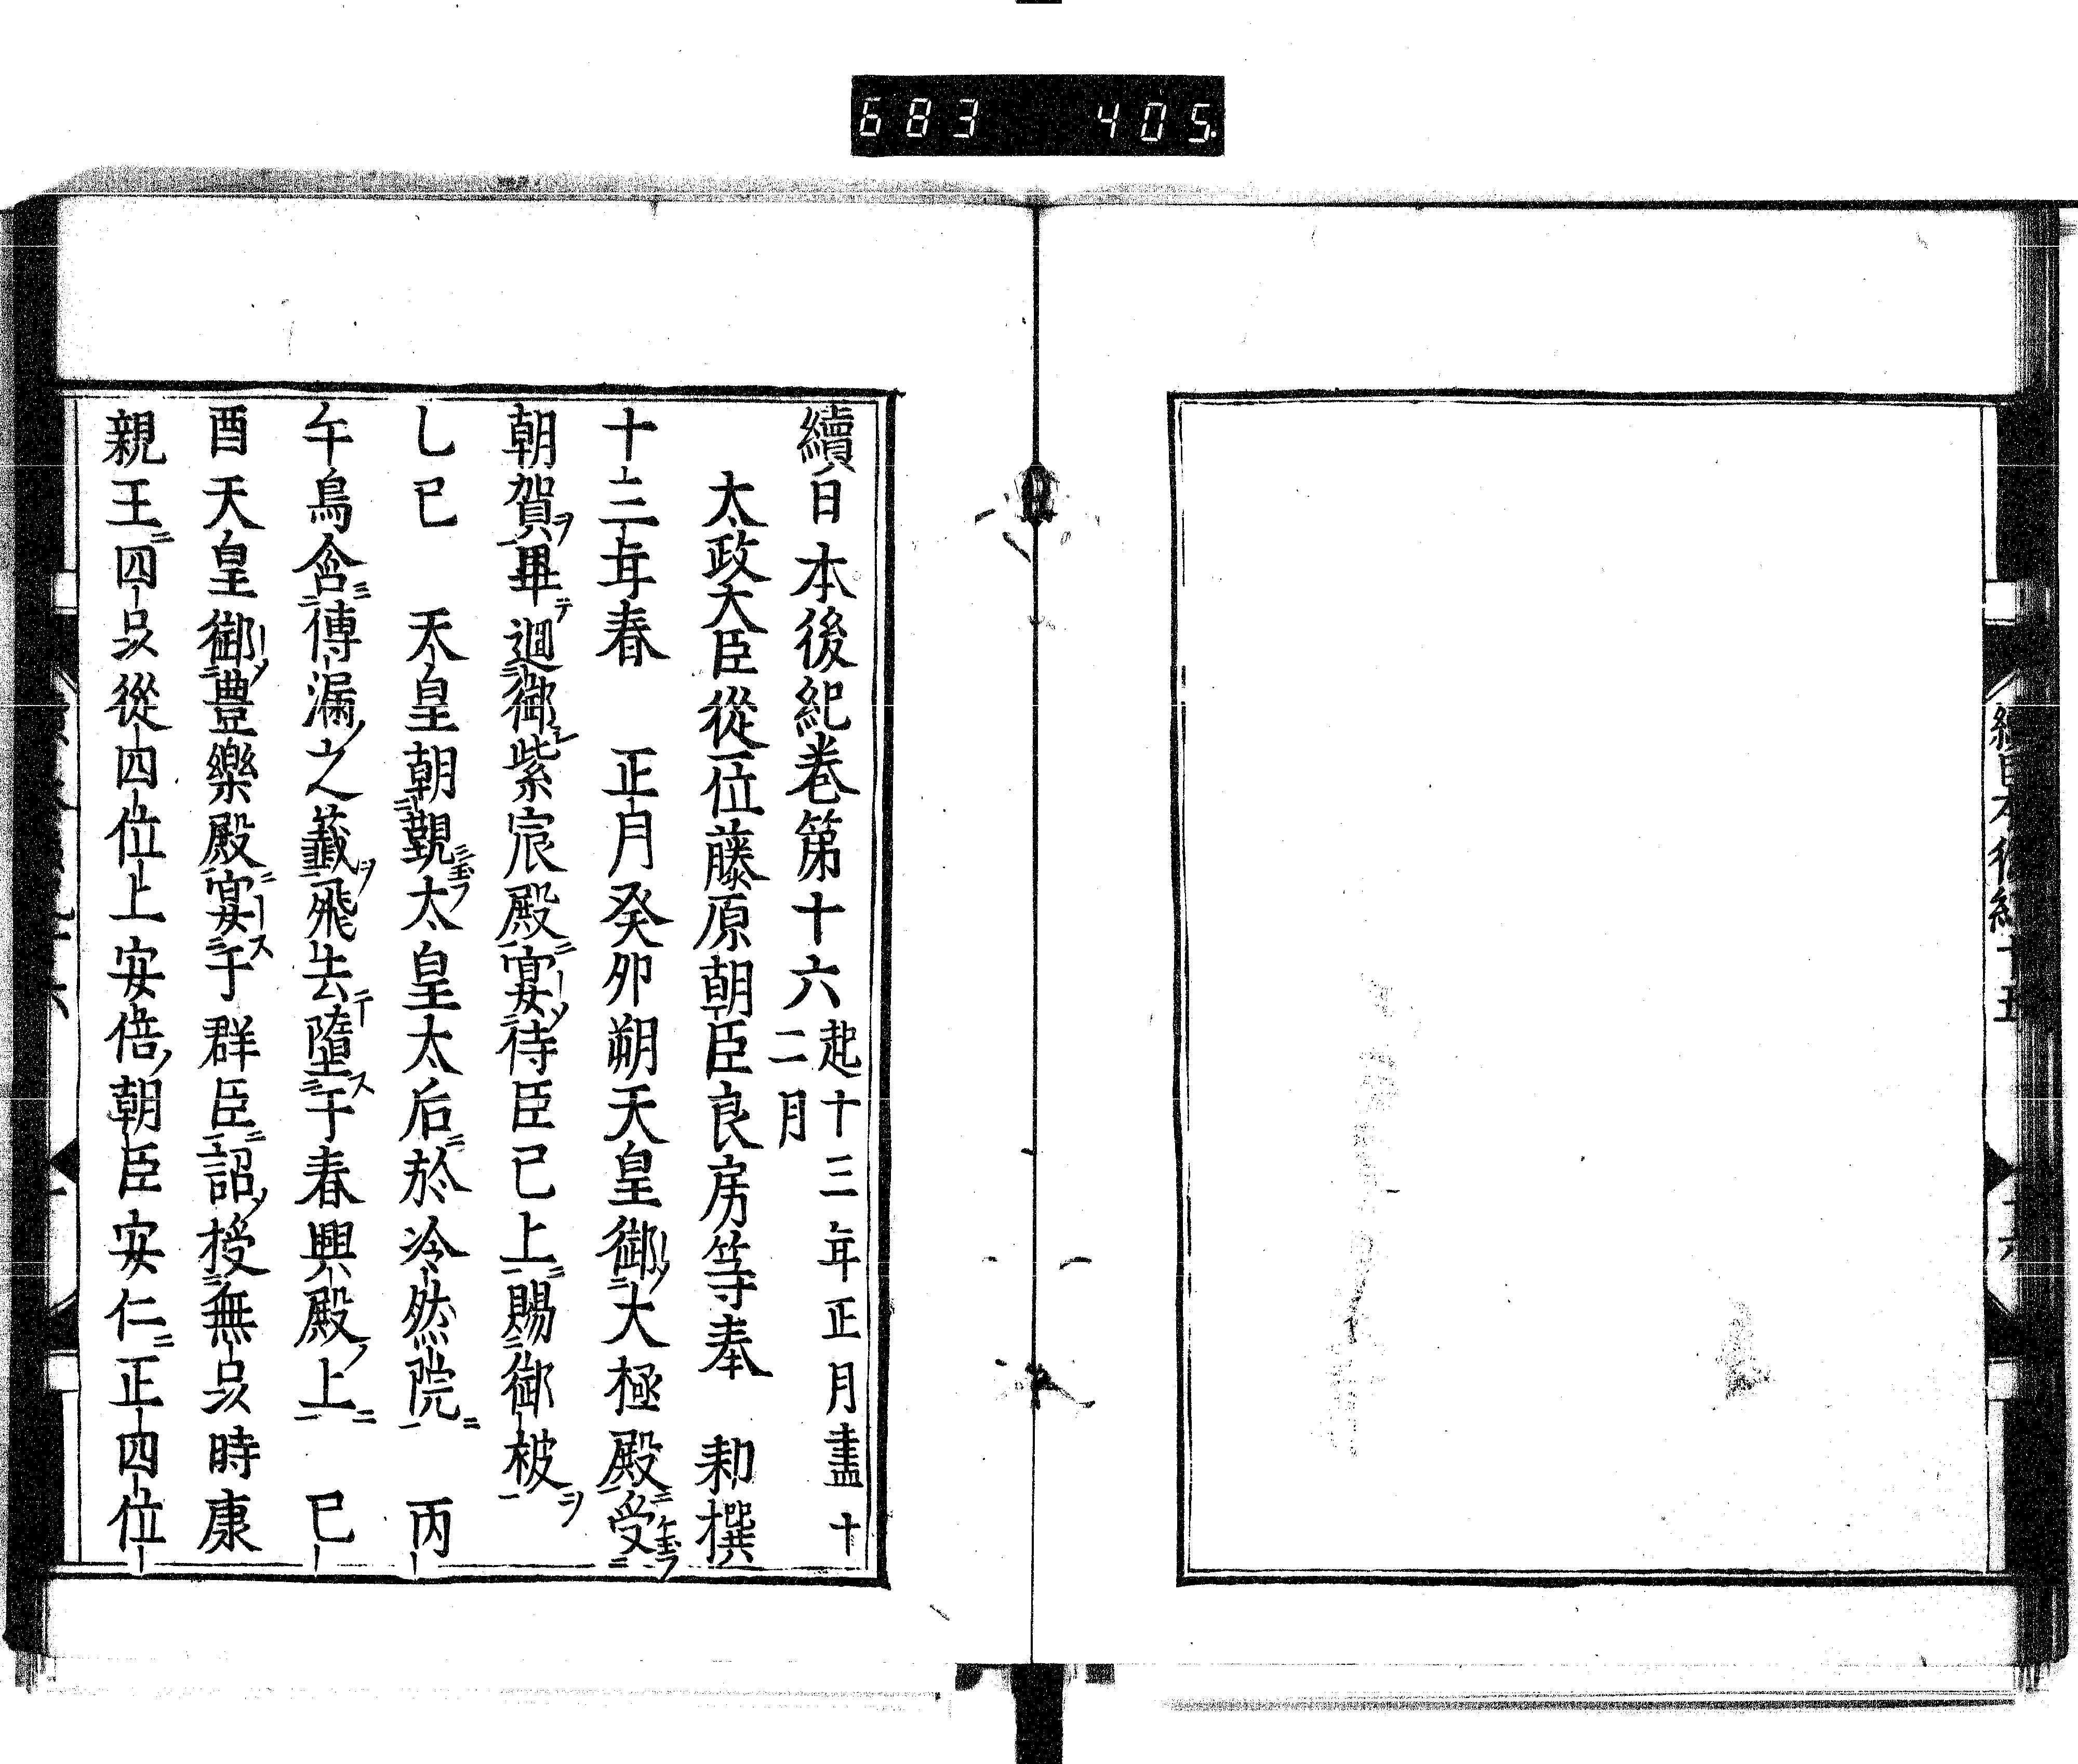 683 405
續日本後紀卷第十六 起十三年正月盡十
二月
太政大臣從一位藤原朝臣良房等奉 勑撰
十三年春 正月癸卯朔天皇御大極殿受
朝賀畢迴御紫宸殿宴侍臣已上賜御被
乙巳 天皇朝覲太皇太后於冷然院 丙
午鳥含傳漏之籤飛去墮于春興殿上 己
酉天皇御豊樂殿宴于群臣詔授無品時康
親王四品從四位上安倍朝臣安仁正四位
續日本後紀 十五